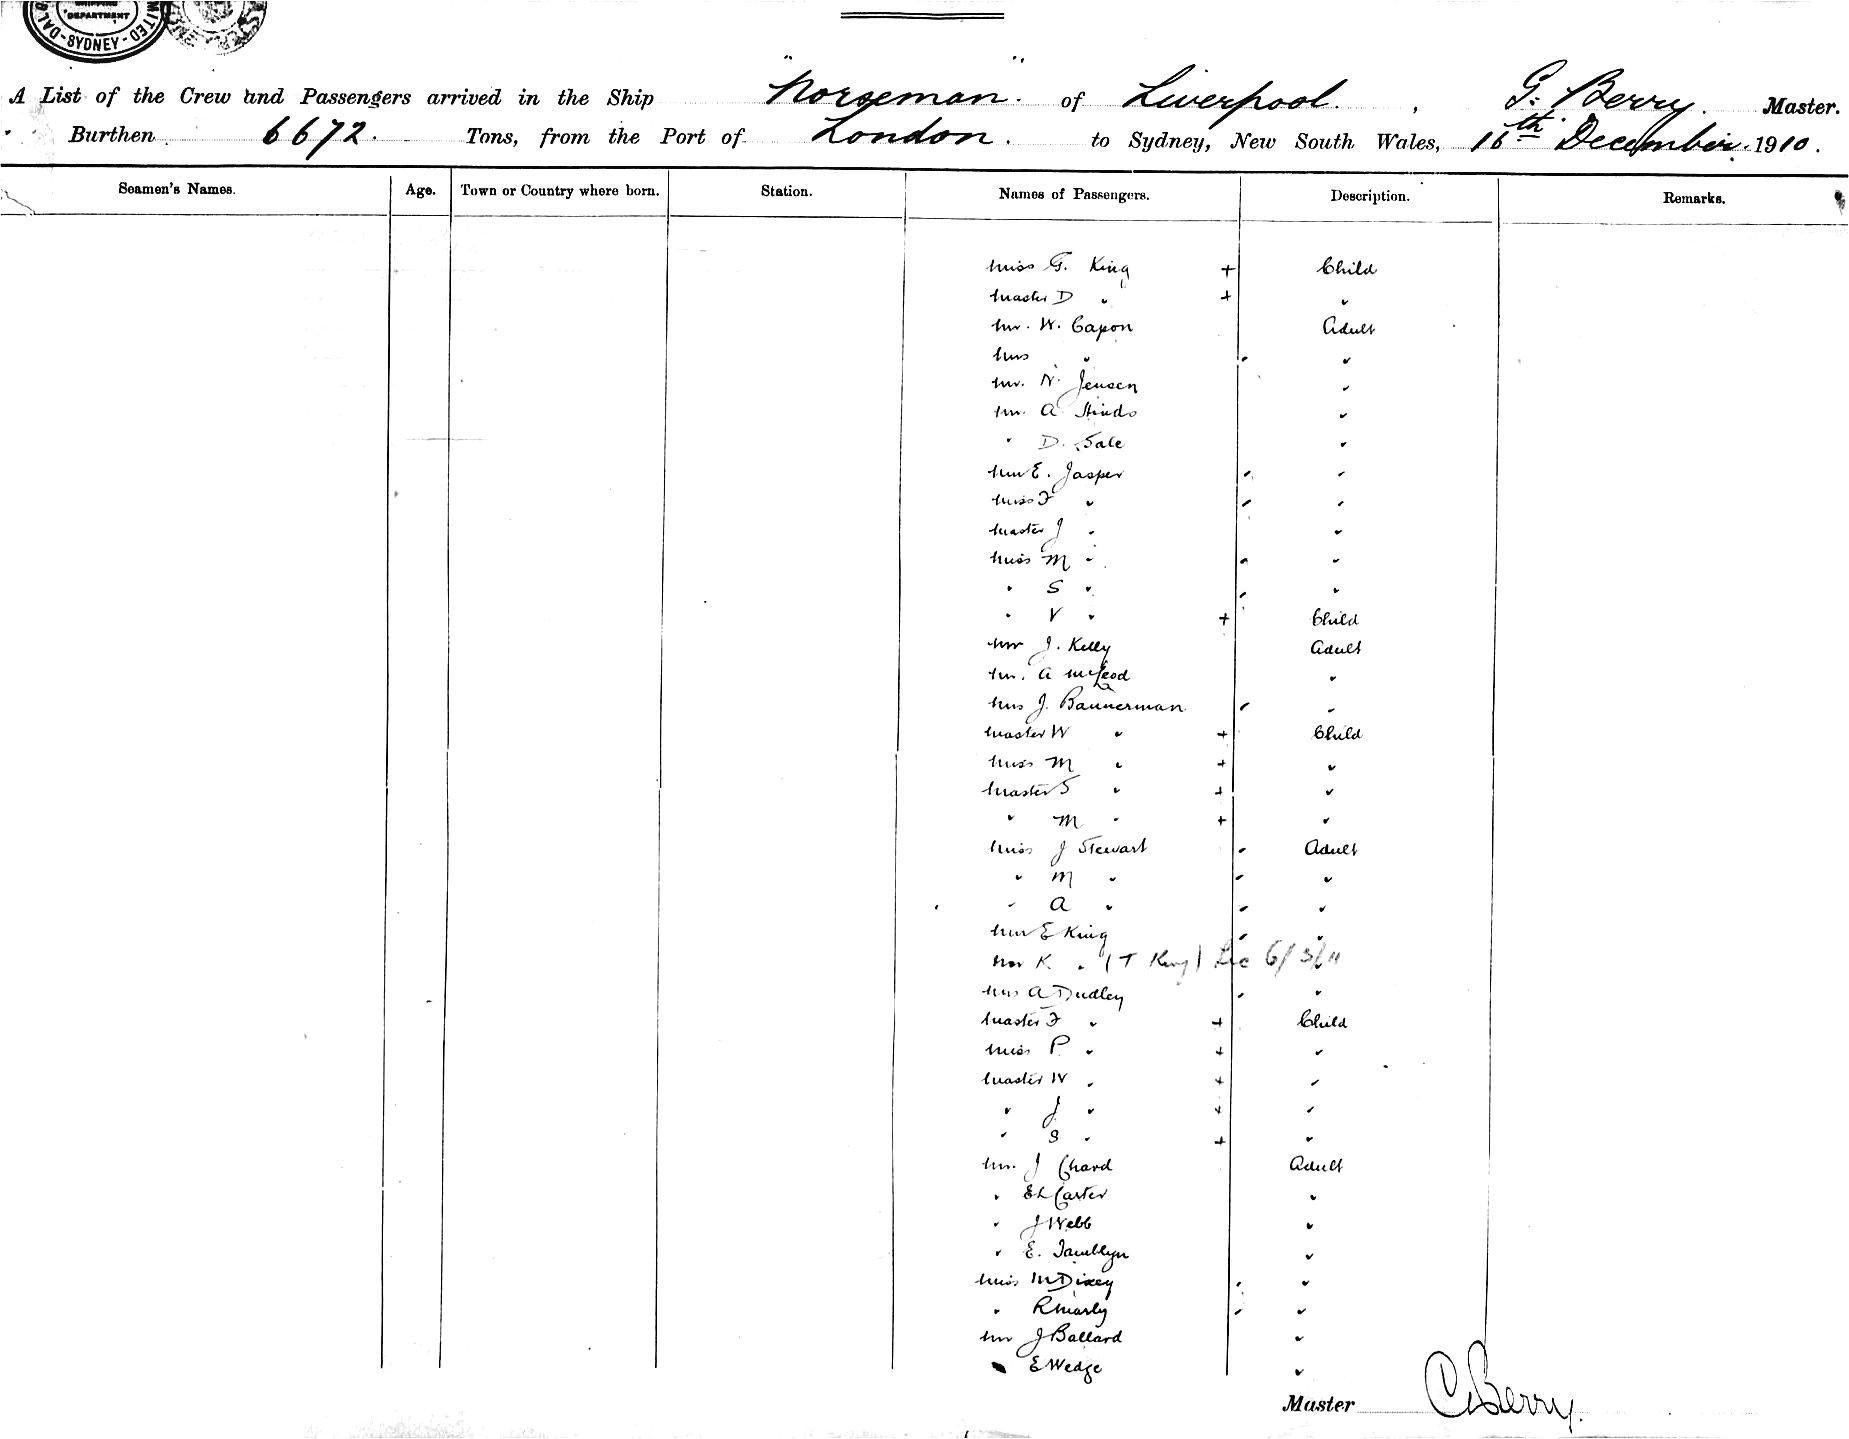 SHIPPING
DEPARTMENT
LIMITED
SYDNEY
A List of the Crew and Passengers arrived in the Ship "Norseman" of Liverpool, G. Berry Master.
Burthen 6672 Tons, from the Port of London to Sydney, New South Wales, 16th December 1910.
Seamen's Names. Age. Town or Country where born. Station. Names of Passengers. Description. Remarks.
Miss G. King + Child
Master D " + "
Mr. W. Capon Adult
Mrs " "
Mr. N. Jensen "
Mr. A Hinds "
" D. Sale "
Mrs E. Jasper "
Miss F " "
Master J " "
Miss M " "
" S " "
" V " + Child
Mr J. Kelly Adult
Mr. A McLeod "
Mrs J. Bannerman "
Master W " + Child
Miss M " + "
Master S " + "
" M " + "
Miss J Stewart Adult
" M " "
" A " "
Mrs E King "
Mr K. " (T King) 6/3/11
Mrs A Dudley "
Master F " + Child
Miss P. " + "
Master W " + "
" J " + "
" S " + "
Mr. J Chard Adult
" E L Carter "
" J Webb "
" E. Tamblyn "
Miss M Dixey "
" R "
Mr J Ballard "
" E Wedge "
Master C Berry.